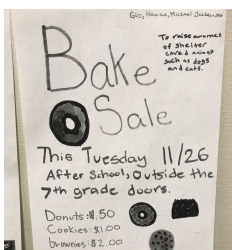 Gio, Hanna, Michael Jackson
To raise
of shelter
such as dogs
and cats.
Bake
Sale
This Tuesday 11/26
After School, Outside the
7th grade doors.
Donuts: $.50
Cookies: $1.00
brownies: $2.00